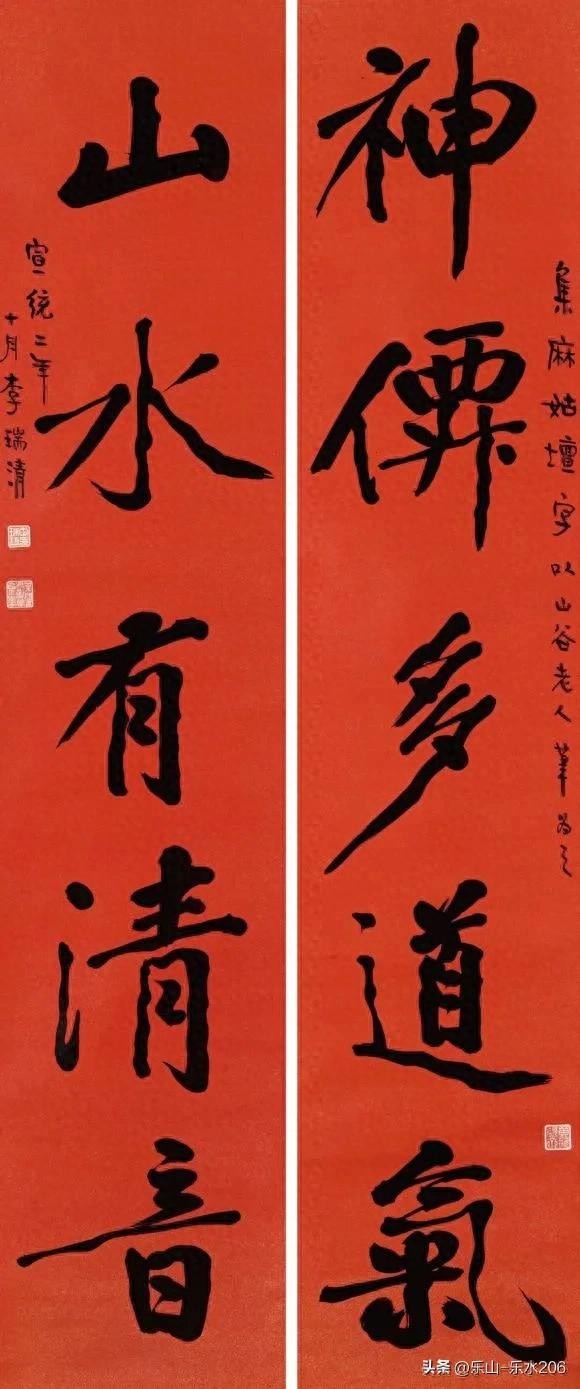 集麻姑壇字以山谷老人筆為之
神僊多道氣
山水有清音
宣統二年
十月李瑞清
头条@乐山-乐水206